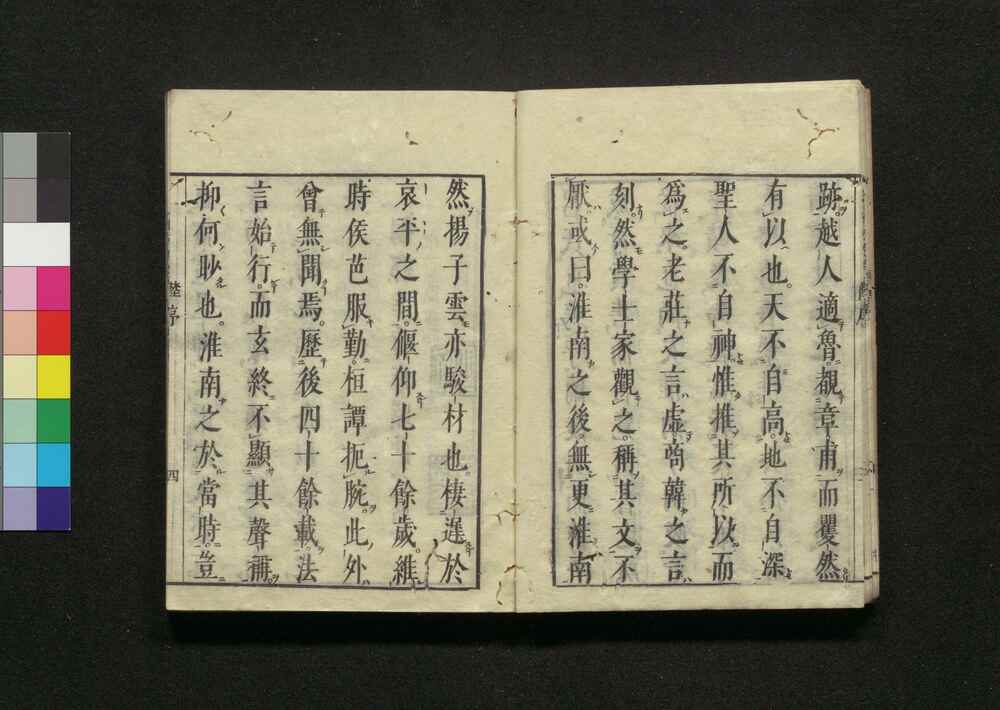 跡越人適魯覩章甫而瞿然
有以也天不自高地不自深
聖人不自神惟推其所以而
為之老莊之言虛商韓之言
刻然學士家觀之稱其文不
厭或曰淮南之後無更淮南
然揚子雲亦駿材也棲遲於
哀平之間偃仰七十餘歲維
時侯芭服勤桓譚扼腕此外
曾無聞焉歷後四十餘載法
言始行而玄終不顯其聲稱
抑何耿也淮南之於當時豈
序
四